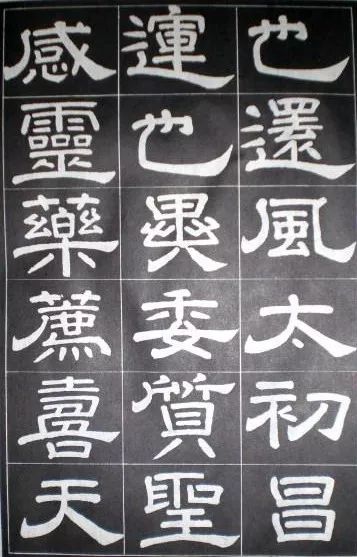 也還風太初昌
運也委質聖
感靈藥薦喜天